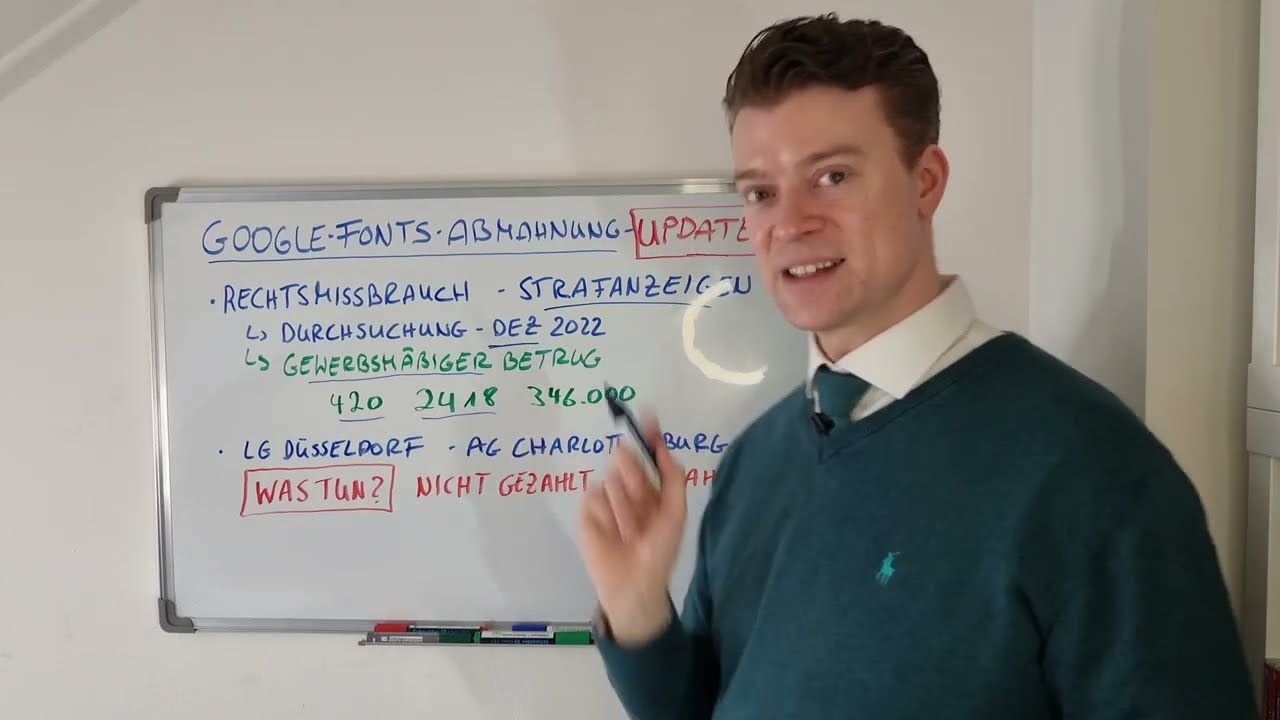 GOOGLE-FONTS-ABMAHNUNG-UPDATE
• RECHTSMISSBRAUCH - STRAFANZEIGEN
↳ DURCHSUCHUNG - DEZ 2022
↳ GEWERBSMÄßIGER BETRUG
420 2418 346.000
• LG DÜSSELDORF - AG
WAS TUN? NICHT GEZAHLT